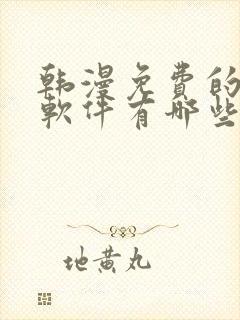 韩漫免费的
软件有哪些
地黄丸